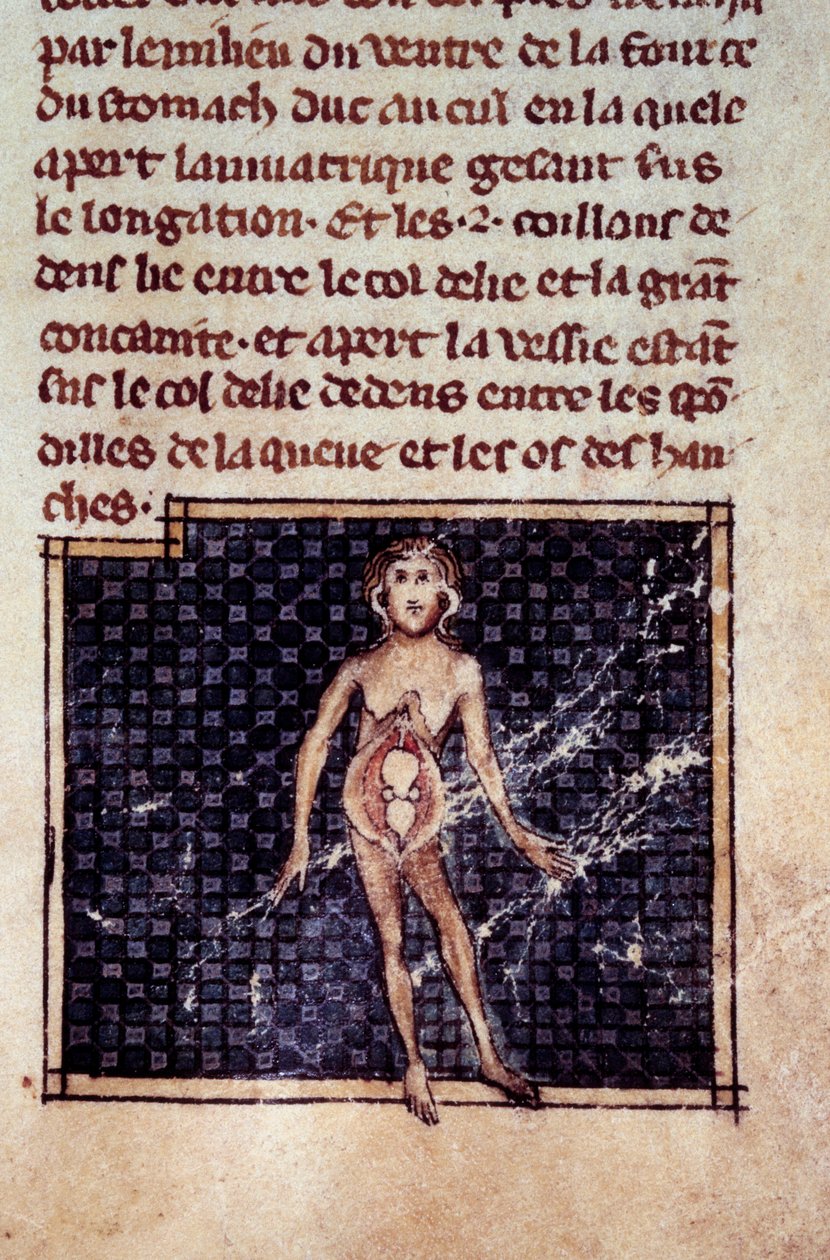 par lemilieu du ventre de la fource
du stomach duc au cul en la quele
apert lamatrique gesant sus
le longation. Et les .2. coillons de
dens lie entre le col delie et la grāt
concauite. et apert la vessie estāt
sus le col delie dedens entre les spō
dilles de la queue et les os des han
ches.